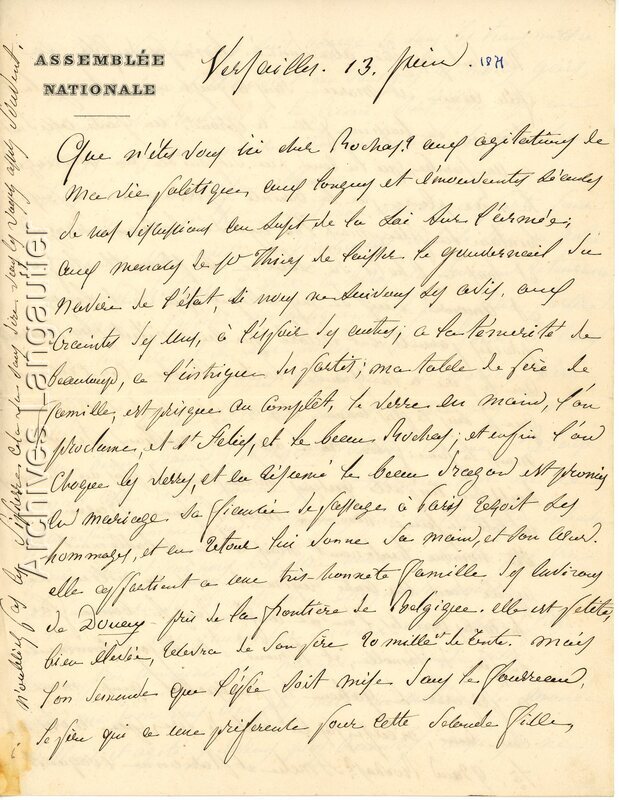 ASSEMBLÉE
NATIONALE
Versailles. 13. Juin. 1871
Que n'êtes vous ici cher Rochas? aux agitations de
ma vie politique, aux longues et émouvantes séances
de nos discussions au sujet de la Loi sur l'armée;
aux menaces de Mr Thiers de laisser le gouvernail du
Navire de l'état, si nous ne suivons ses avis, aux
craintes des uns, à l'espoir des autres; a la témérité de
beaucoup, a l'intrigue des partis; ma table de père de
famille, est presque au complet, le verre en main, l'on
proclame, et St Félix, et le beau Rochas; et enfin l'on
choque les verres, et en résumé le beau dragon est promis
en mariage sa fiancée de passage à Paris reçoit ses
hommages, et en retour lui donne sa main, et son cœur.
elle appartient a une très honnête famille des environs
de Douay près de la frontière de Belgique. elle est petite,
bien élevée, de son père 20 mille de rente. mais
l'on demande que l'épée soit mise dans le fourreau,
le père qui a une préférence pour cette seconde fille,
N'oubliez pas les
Archives Langautier